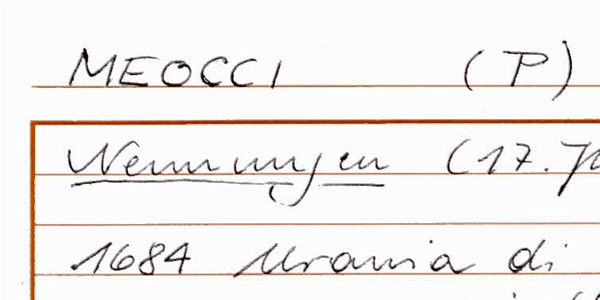 MEOCCI (P)
Nennungen (17. J
1684 Urania di